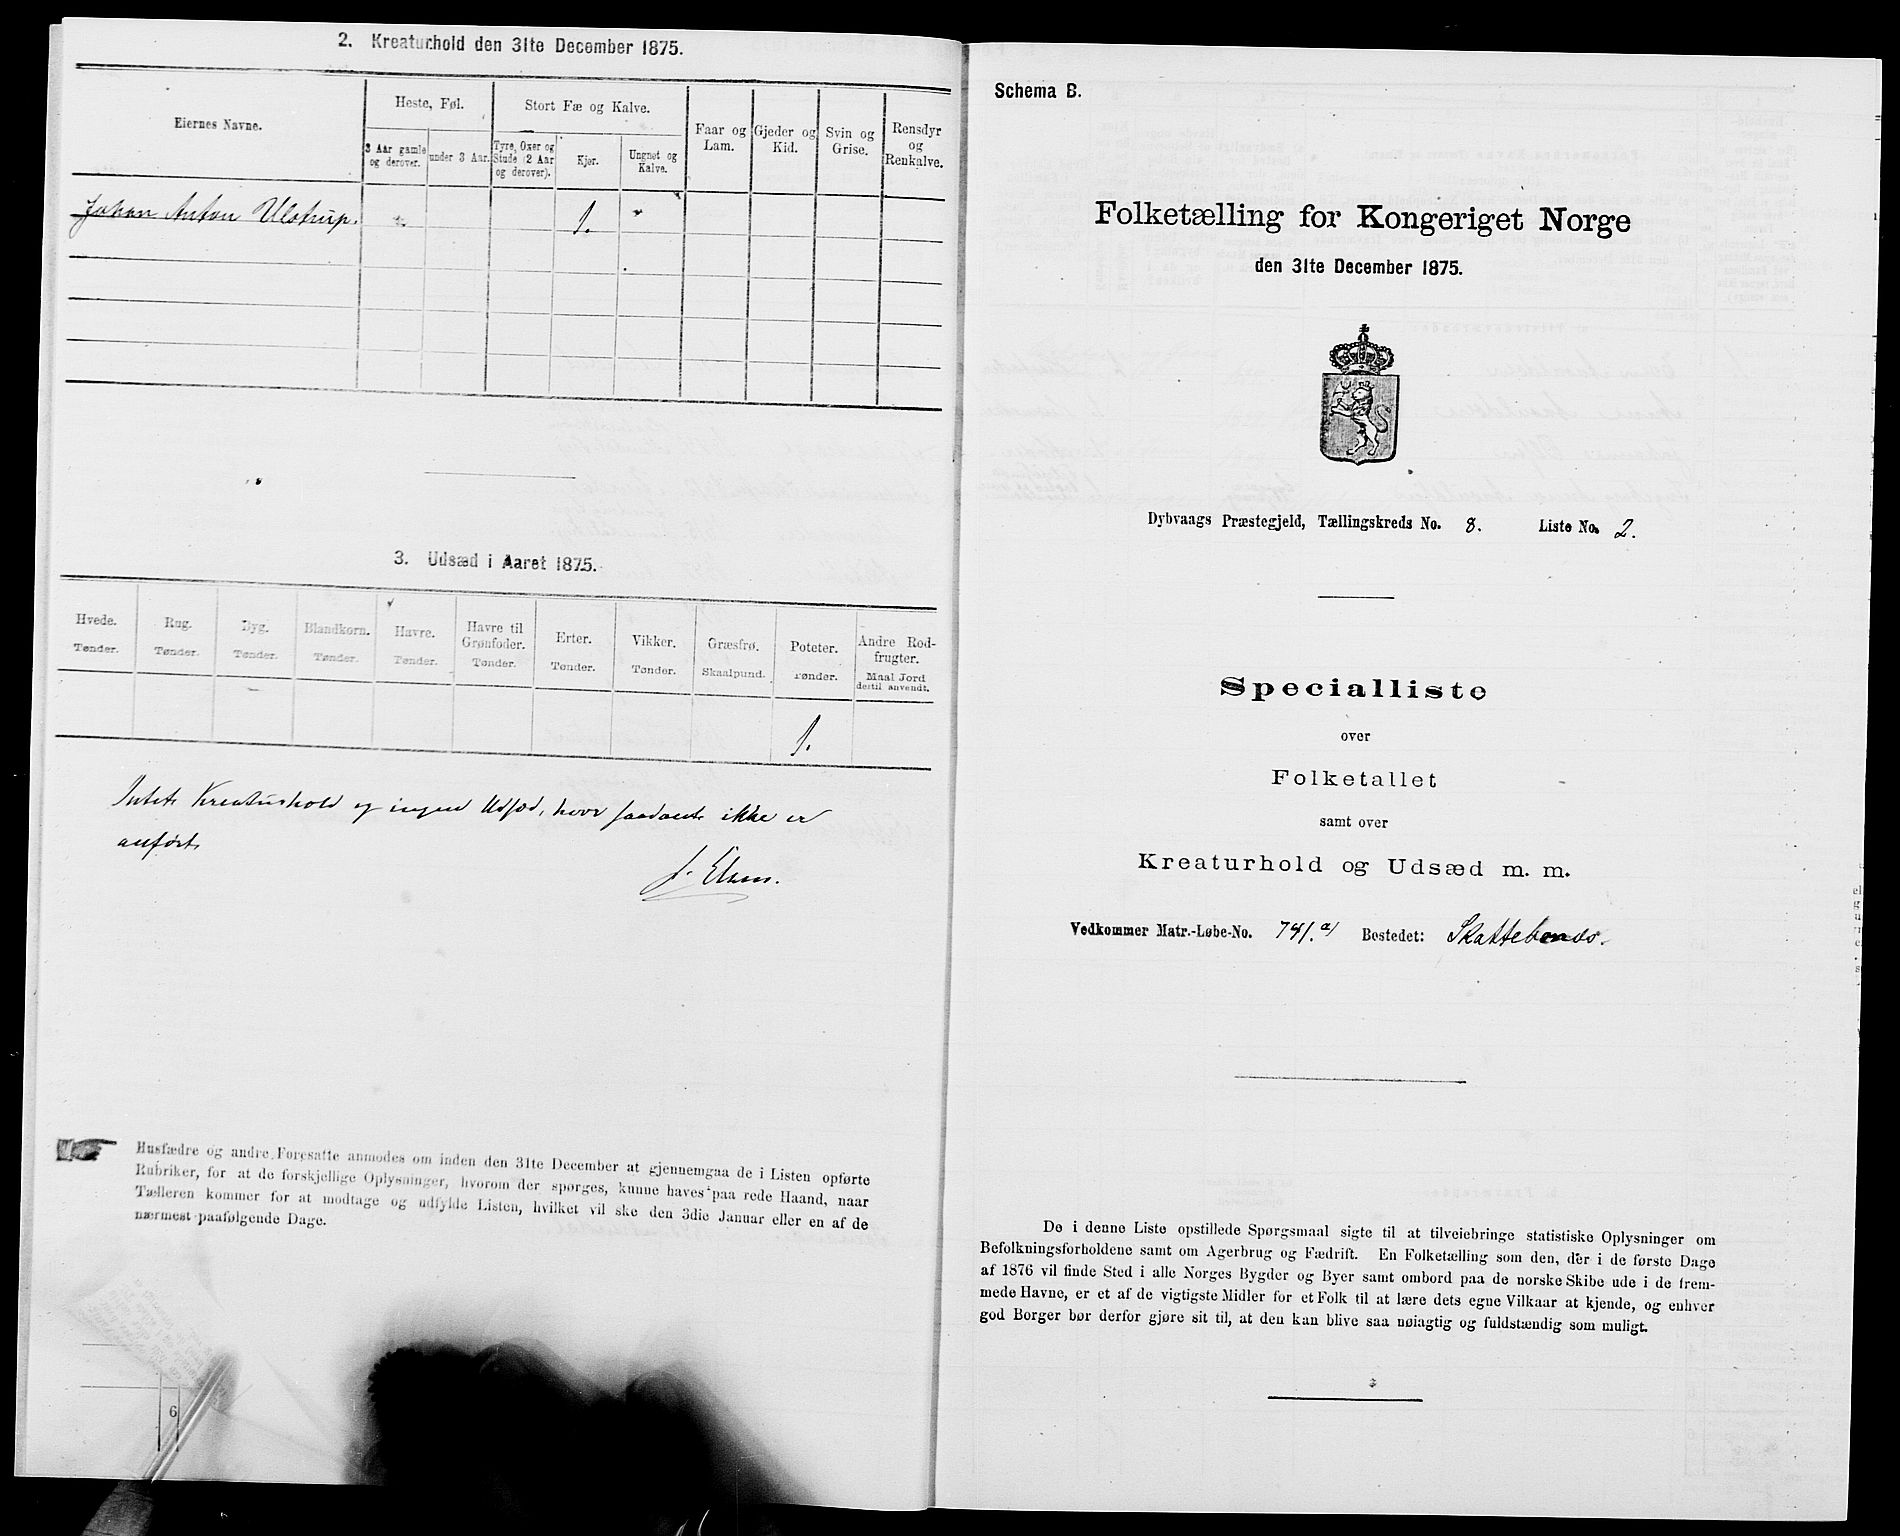 2. Kreaturhold den 31te December 1875.
Eiernes Navne.
Heste, Føl.
Stort Fæ og Kalve.
Faar og Lam.
Gjeder og Kid.
Svin og Grise.
Rensdyr og Renkalve.
3 Aar gamle og derover.
under 3 Aar.
Tyre, Oxer og Stude (2 Aar og derover).
Kjør.
Ungnøt og Kalve.
Johan Anton Ulstrup.
1.
3. Udsæd i Aaret 1875.
Hvede. Tønder.
Rug. Tønder.
Byg. Tønder.
Blandkorn. Tønder.
Havre. Tønder.
Havre til Grønfoder. Tønder.
Erter. Tønder.
Vikker. Tønder.
Græsfrø. Skaalpund.
Poteter. Tønder.
Andre Rodfrugter. Maal Jord dertil anvendt.
1.
Intet Kreaturhold og ingen Udsæd, hvor saadant ikke er
anført.
Husfædre og andre Foresatte anmodes om inden den 31te December at gjennemgaa de i Listen opførte
Rubriker, for at de forskjellige Oplysninger, hvorom der spørges, kunne haves paa rede Haand, naar
Tælleren kommer for at modtage og udfylde Listen, hvilket vil ske den 3die Januar eller en af de
nærmest paafølgende Dage.
6
Schema B.
Folketælling for Kongeriget Norge
den 31te December 1875.
Dybvaags Præstegjeld, Tællingskreds No. 8. Liste No. 2.
Specialliste
over
Folketallet
samt over
Kreaturhold og Udsæd m. m.
Vedkommer Matr.-Løbe-No. 741.a) Bostedet:
De i denne Liste opstillede Spørgsmaal sigte til at tilveiebringe statistiske Oplysninger om
Befolkningsforholdene samt om Agerbrug og Fædrift. En Folketælling som den, der i de første Dage
af 1876 vil finde Sted i alle Norges Bygder og Byer samt ombord paa de norske Skibe ude i de frem-
mede Havne, er et af de vigtigste Midler for et Folk til at lære dets egne Vilkaar at kjende, og enhver
god Borger bør derfor gjøre sit til, at den kan blive saa nøiagtig og fuldstændig som muligt.